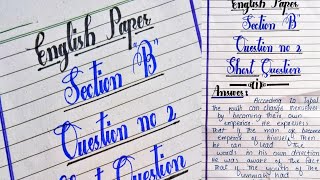 English Paper
Section "B"
Question no 2
Short Question
English Paper
Section "B"
Question no 2
Short Question
(i)
Answer:
According to Iqbal
The youth can change themselves
by becoming their own
emperor. He expresses
that if the man be
emperor of himself then
he can lead the
world in his own direction
He was aware of the fact
that if the youths of the
had